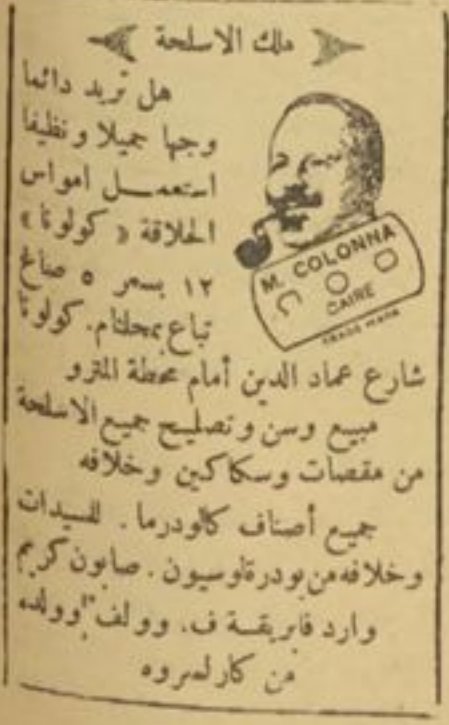 ملك الاسلحة
هل تريد دائما
وجها جميلا ونظيفا
استعمل امواس
الحلاقة « كولونا »
١٢ بسعر ٥ صاغ
تباع بمحلتام. كولونا
M. COLONNA
CAIRE
TRADE MARK
شارع عماد الدين أمام محطة المترو
مبيع وسن وتصليح جميع الاسلحة
من مقصات وسكاكين وخلافه
جميع أصناف كالودرما . للسيدات
وخلافه من بودرة لوسيون . صابون كريم
وارد فابريقة ف. وولف "وولده
من كارلسروه